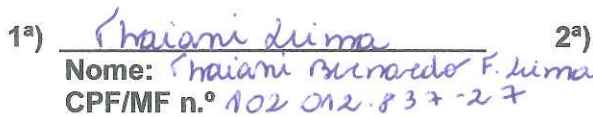 1ª) Thaiani Lima 2ª)
Nome: Thaiani Bernardo F. Lima
CPF/MF n.º 102 012.837-27